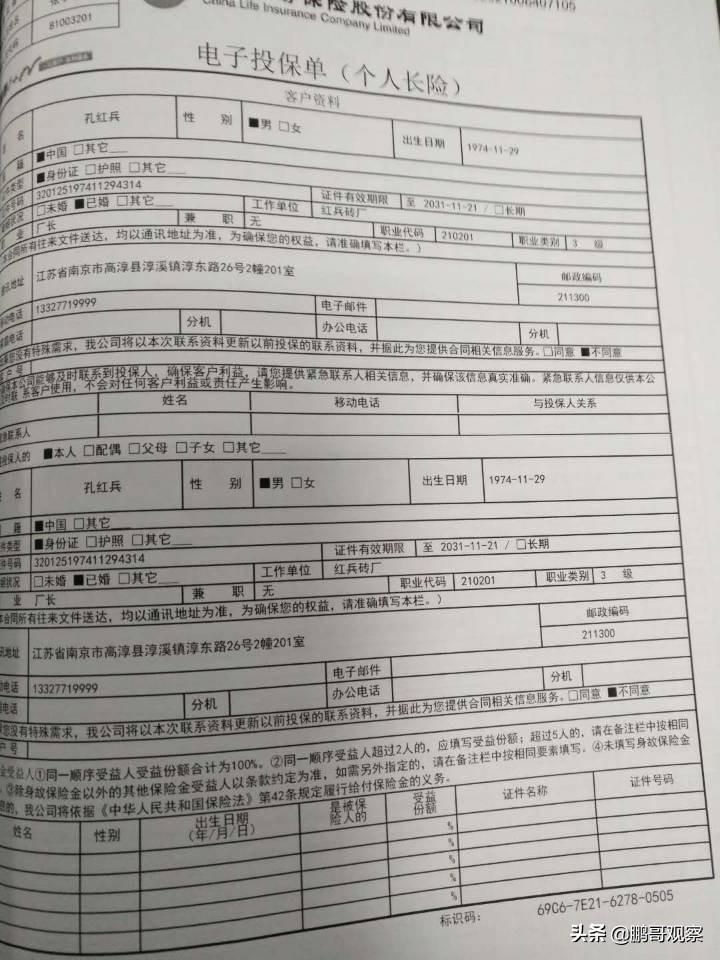 保险股份有限公司
China Life Insurance Company Limited
81003201
电子投保单（个人长险）
客户资料
名 孔红兵 性 别 ■男 □女 出生日期 1974-11-29
籍 ■中国 □其它
件类型 ■身份证 □护照 □其它
件号码 320125197411294314 证件有效期限 至 2031-11-21 / □长期
婚姻状况 □未婚 ■已婚 □其它 工作单位 红兵砖厂
业 厂长 兼 职 无 职业代码 210201 职业类别 3 级
本合同所有往来文件送达，均以通讯地址为准，为确保您的权益，请准确填写本栏。）
通讯地址 江苏省南京市高淳县淳溪镇淳东路26号2幢201室 邮政编码
211300
移动电话 13327719999 电子邮件
电话 分机 办公电话 分机
您没有特殊需求，我公司将以本次联系资料更新以前投保的联系资料，并据此为您提供合同相关信息服务。□同意 ■不同意
户号
确保本公司能够及时联系到投保人，确保客户利益，请您提供紧急联系人相关信息，并确保该信息真实准确。紧急联系人信息仅供本公
及时联 系客户使用，不会对任何客户利益或责任产生影响。
姓名 移动电话 与投保人关系
急联系人
投保人的 ■本人 □配偶 □父母 □子女 □其它
姓 名 孔红兵 性 别 ■男 □女 出生日期 1974-11-29
籍 ■中国 □其它
件类型 ■身份证 □护照 □其它
件号码 320125197411294314 证件有效期限 至 2031-11-21 / □长期
婚状况 □未婚 ■已婚 □其它 工作单位 红兵砖厂
业 厂长 兼 职 无 职业代码 210201 职业类别 3 级
本合同所有往来文件送达，均以通讯地址为准，为确保您的权益，请准确填写本栏。）
讯地址 江苏省南京市高淳县淳溪镇淳东路26号2幢201室 邮政编码
211300
动电话 13327719999 电子邮件
电话 分机 办公电话 分机
您没有特殊需求，我公司将以本次联系资料更新以前投保的联系资料，并据此为您提供合同相关信息服务。□同意 ■不同意
户 号
金受益人①同一顺序受益人受益份额合计为100%。②同一顺序受益人超过2人的，应填写受益份额；超过5人的，请在备注栏中按相同
。③除身故保险金以外的其他保险金受益人以条款约定为准，如需另外指定的，请在备注栏中按相同要素填写。④未填写身故保险金
的，我公司将依据《中华人民共和国保险法》第42条规定履行给付保险金的义务。
姓名 性别 出生日期
（年/月/日） 是被保
险人的 受益
份额 证件名称 证件号码
%
%
%
%
%
标识码： 69C6-7E21-6278-0505
头条 @鹏哥观察